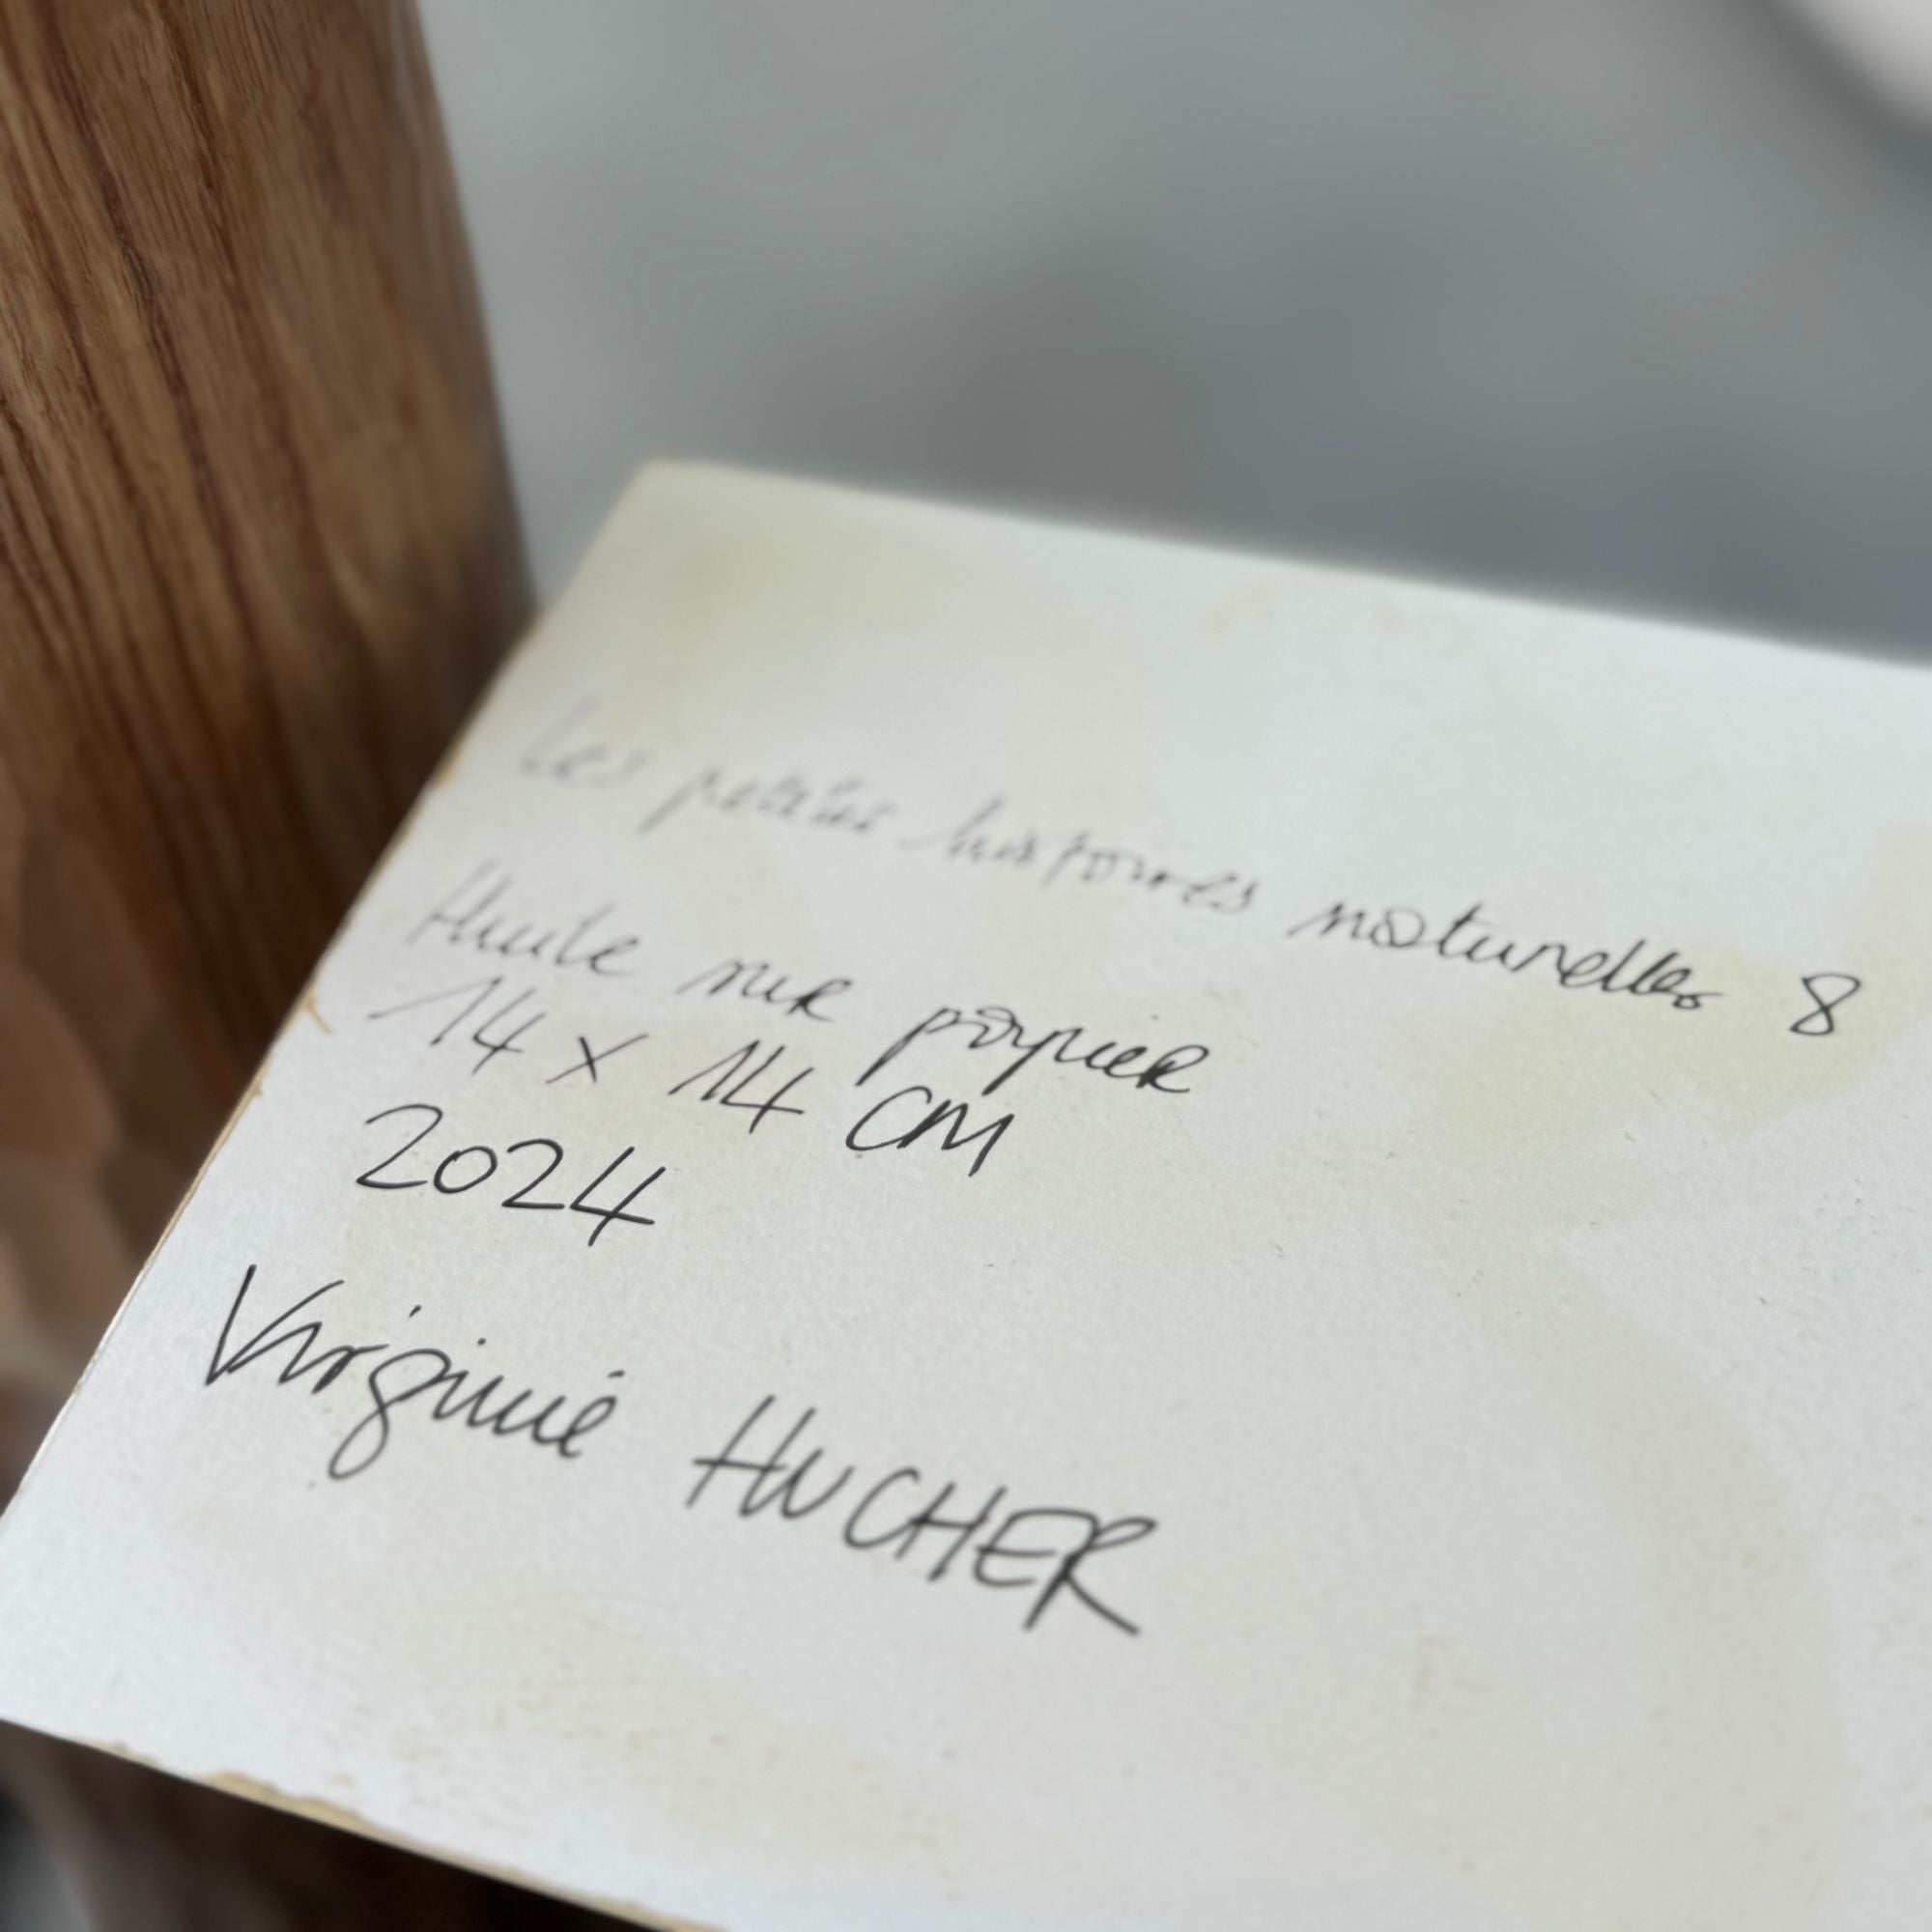 Les petites histoires naturelles 8
Huile sur papier
14 x 14 CM
2024
Virginie HUCHER